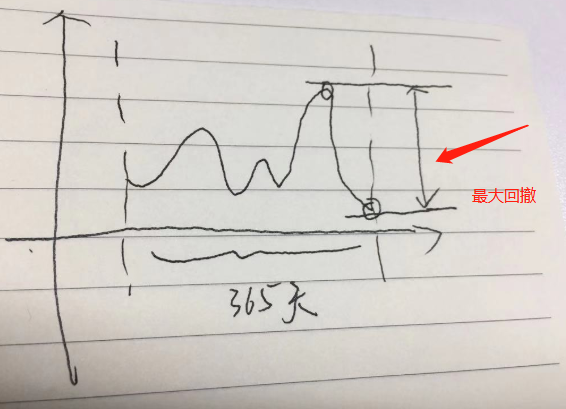 最大回撤
365天